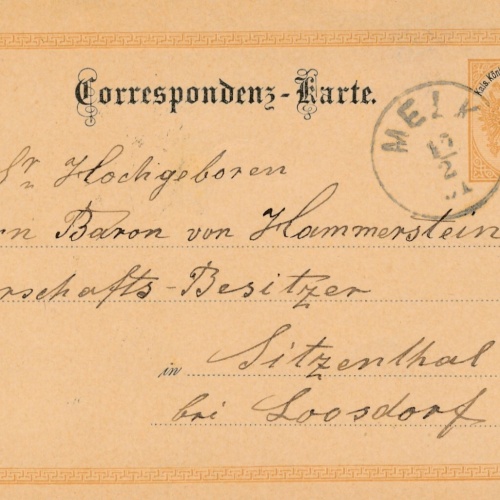 Correspondenz-Karte.
Kais. Kön
MELK
12
2
Sr Hochgeboren
rn Baron von Hammerstein
rschafts-Besitzer
in Sitzenthal
bei Loosdorf